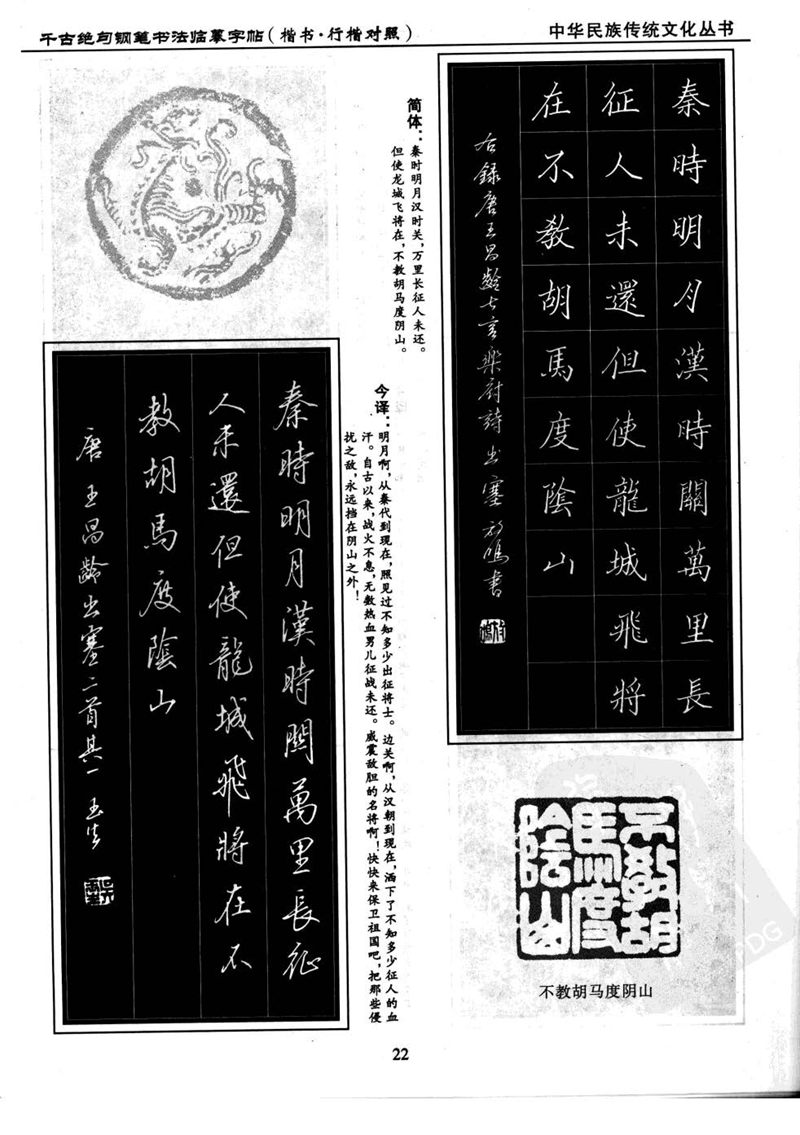 千古绝句钢笔书法临摹字帖（楷书·行楷对照）
中华民族传统文化丛书
秦時明月漢時關萬里長
征人未還但使龍城飛將
在不教胡馬度陰山
右錄唐王昌齡七言樂府詩出塞
简体：秦时明月汉时关，万里长征人未还。
但使龙城飞将在，不教胡马度阴山。
今译：明月啊，从秦代到现在，照见过不知多少出征将士。边关啊，从汉朝到现在，洒下了不知多少征人的血
汗。自古以来，战火不息，无数热血男儿征战未还。威震敌胆的名将啊！快快来保卫祖国吧，把那些侵
扰之敌，永远挡在阴山之外！
秦時明月漢時關萬里長征
人未還但使龍城飛將在不
教胡馬度陰山
唐王昌齡出塞二首其一
不教胡
馬度
陰山
不教胡马度阴山
22